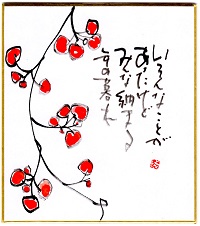 いろんなことが
あったけど
みんな納まる
年の暮れ